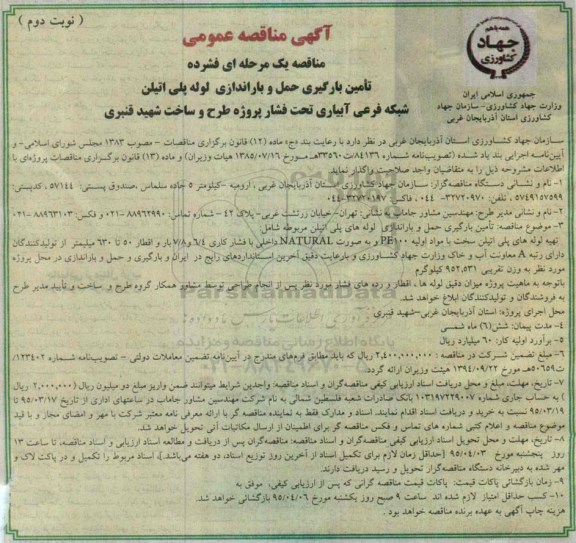 ( نوبت دوم )
همه با هم
جهاد
کشاورزی
جمهوری اسلامی ایران
وزارت جهاد کشاورزی- سازمان جهاد
کشاورزی استان آذربایجان غربی
آگهی مناقصه عمومی
مناقصه یک مرحله ای فشرده
تأمین بارگیری حمل و باراندازی لوله پلی اتیلن
شبکه فرعی آبیاری تحت فشار پروژه طرح و ساخت شهید قنبری
سازمان جهاد کشاورزی استان آذربایجان غربی در نظر دارد با رعایت بند «ج» ماده (۱۲) قانون برگزاری مناقصات - مصوب ۱۳۸۳ مجلس شورای اسلامی- و
آیین‌نامه اجرایی بند یاد شده (تصویب‌نامه شماره ۸۴۱۳۶/ت۳۳۵۶۰هـ مورخ ۱۳۸۵/۰۷/۱۶ هیات وزیران) و ماده (۱۳) قانون برگزاری مناقصات پروژه‌ای با
اطلاعات مشروحه ذیل را به متقاضیان واجد صلاحیت واگذار نماید
۱- نام و نشانی دستگاه مناقصه‌گزار: سازمان جهاد کشاورزی استان آذربایجان غربی ، ارومیه -کیلومتر ۵ جاده سلماس ،صندوق پستی: ۵۷۱۴۴ ، کدپستی:
۵۷۴۹۱۵۷۵۹۹، تلفن: ۳۲۷۲۰۹۷۰- ۰۴۴ ، فاکس: ۳۲۷۲۰۱۸۷-۰۴۴
۲- نام و نشانی مدیر طرح: مهندسین مشاور جاماب به نشانی: تهران- خیابان زرتشت غربی- پلاک ۴۲ - شماره تماس: ۸۸۹۶۲۹۹۰-۰۲۱ و فکس: ۸۸۹۶۳۱۰۳-۰۲۱
۳- موضوع مناقصه: تأمین بارگیری حمل و باراندازی لوله های پلی اتیلن مربوطه شامل:
تهیه لوله های پلی اتیلن سخت با مواد اولیه PE۱۰۰ و به صورت NATURAL داخلی با فشار کاری ۶/۴ و ۷/۸ بار و اقطار ۵۰ تا ۶۳۰ میلیمتر از تولیدکنندگان
دارای رتبه A معاونت آب و خاک وزارت جهاد کشاورزی و بارعایت دقیق آخرین استانداردهای رایج در ایران و بارگیری و حمل و باراندازی در محل پروژه
مورد نظر به وزن تقریبی ۹۵۲,۵۳۱ کیلوگرم
باتوجه به ماهیت پروژه میزان دقیق لوله ها ، اقطار و رده های فشار مورد نظر پس از انجام طراحی توسط مشاور همکار گروه طرح و ساخت و تأیید مدیر طرح
به فروشندگان و تولیدکنندگان ابلاغ خواهد شد.
محل اجرای پروژه: استان آذربایجان غربی-شهید قنبری
۴- مدت پیمان: شش(۶) ماه شمسی
۵- برآورد اولیه کار: ۶۰ میلیارد ریال
۶- مبلغ تضمین شرکت در مناقصه : ۲,۴۰۰,۰۰۰,۰۰۰ ریال که باید مطابق فرم‌های مندرج در آیین‌نامه تضمین معاملات دولتی – تصویب‌نامه شماره ۱۲۳۴۰۲/
ت۵۰۶۵۹هـ مورخ ۱۳۹۴/۰۹/۲۲ هیئت وزیران ارائه گردد.
۷- تاریخ، مهلت، مبلغ و محل دریافت اسناد ارزیابی کیفی مناقصه‌گران و اسناد مناقصه: واجدین شرایط میتوانند ضمن واریز مبلغ دو میلیون ریال (۲,۰۰۰,۰۰۰ ریال
) به حساب جاری شماره ۰۱۰۳۱۹۷۲۲۹۰۰۷ بانک صادرات شعبه فلسطین شمالی به نام شرکت مهندسین مشاور جاماب در ساعتهای اداری از تاریخ ۹۵/۰۳/۱۷ تا
۹۵/۰۳/۱۹ نسبت به خرید و دریافت اسناد اقدام نمایند. اسناد و مدارک فقط به نماینده مناقصه گر با ارائه معرفی نامه معتبر شرکت با مهر و امضای مجاز و با قید
موضوع مناقصه و اعلام کتبی شماره های تماس و فکس مناقصه گر برای اطمینان از ارسال مکاتبات آتی تحویل خواهد شد.
۸- تاریخ، مهلت و محل تحویل اسناد ارزیابی کیفی مناقصه‌گران و اسناد مناقصه: مناقصه‌گران پس از دریافت و مطالعه اسناد ارزیابی و اسناد مناقصه، تا ساعت ۱۳
روز پنجشنبه مورخ ۹۵/۰۴/۰۳ [حداقل زمان لازم برای تکمیل اسناد از آخرین روز توزیع اسناد، دو هفته می‌باشد.]، اسناد مربوط را تکمیل و در پاکت لاک و
مهر شده به دبیرخانه دستگاه مناقصه‌گزار تحویل و رسید دریافت دارند.
۹- زمان بازگشائی پاکات قیمت: پاکات قیمت مناقصه گرانی که پس از ارزیابی کیفی، موفق به
۱۰- کسب حداقل امتیاز لازم شده اند ساعت ۹ صبح روز یکشنبه مورخ ۹۵/۰۴/۰۶ بازگشائی خواهد شد.
هزینه چاپ آگهی به عهده برنده مناقصه خواهد بود .
ParsNamadData